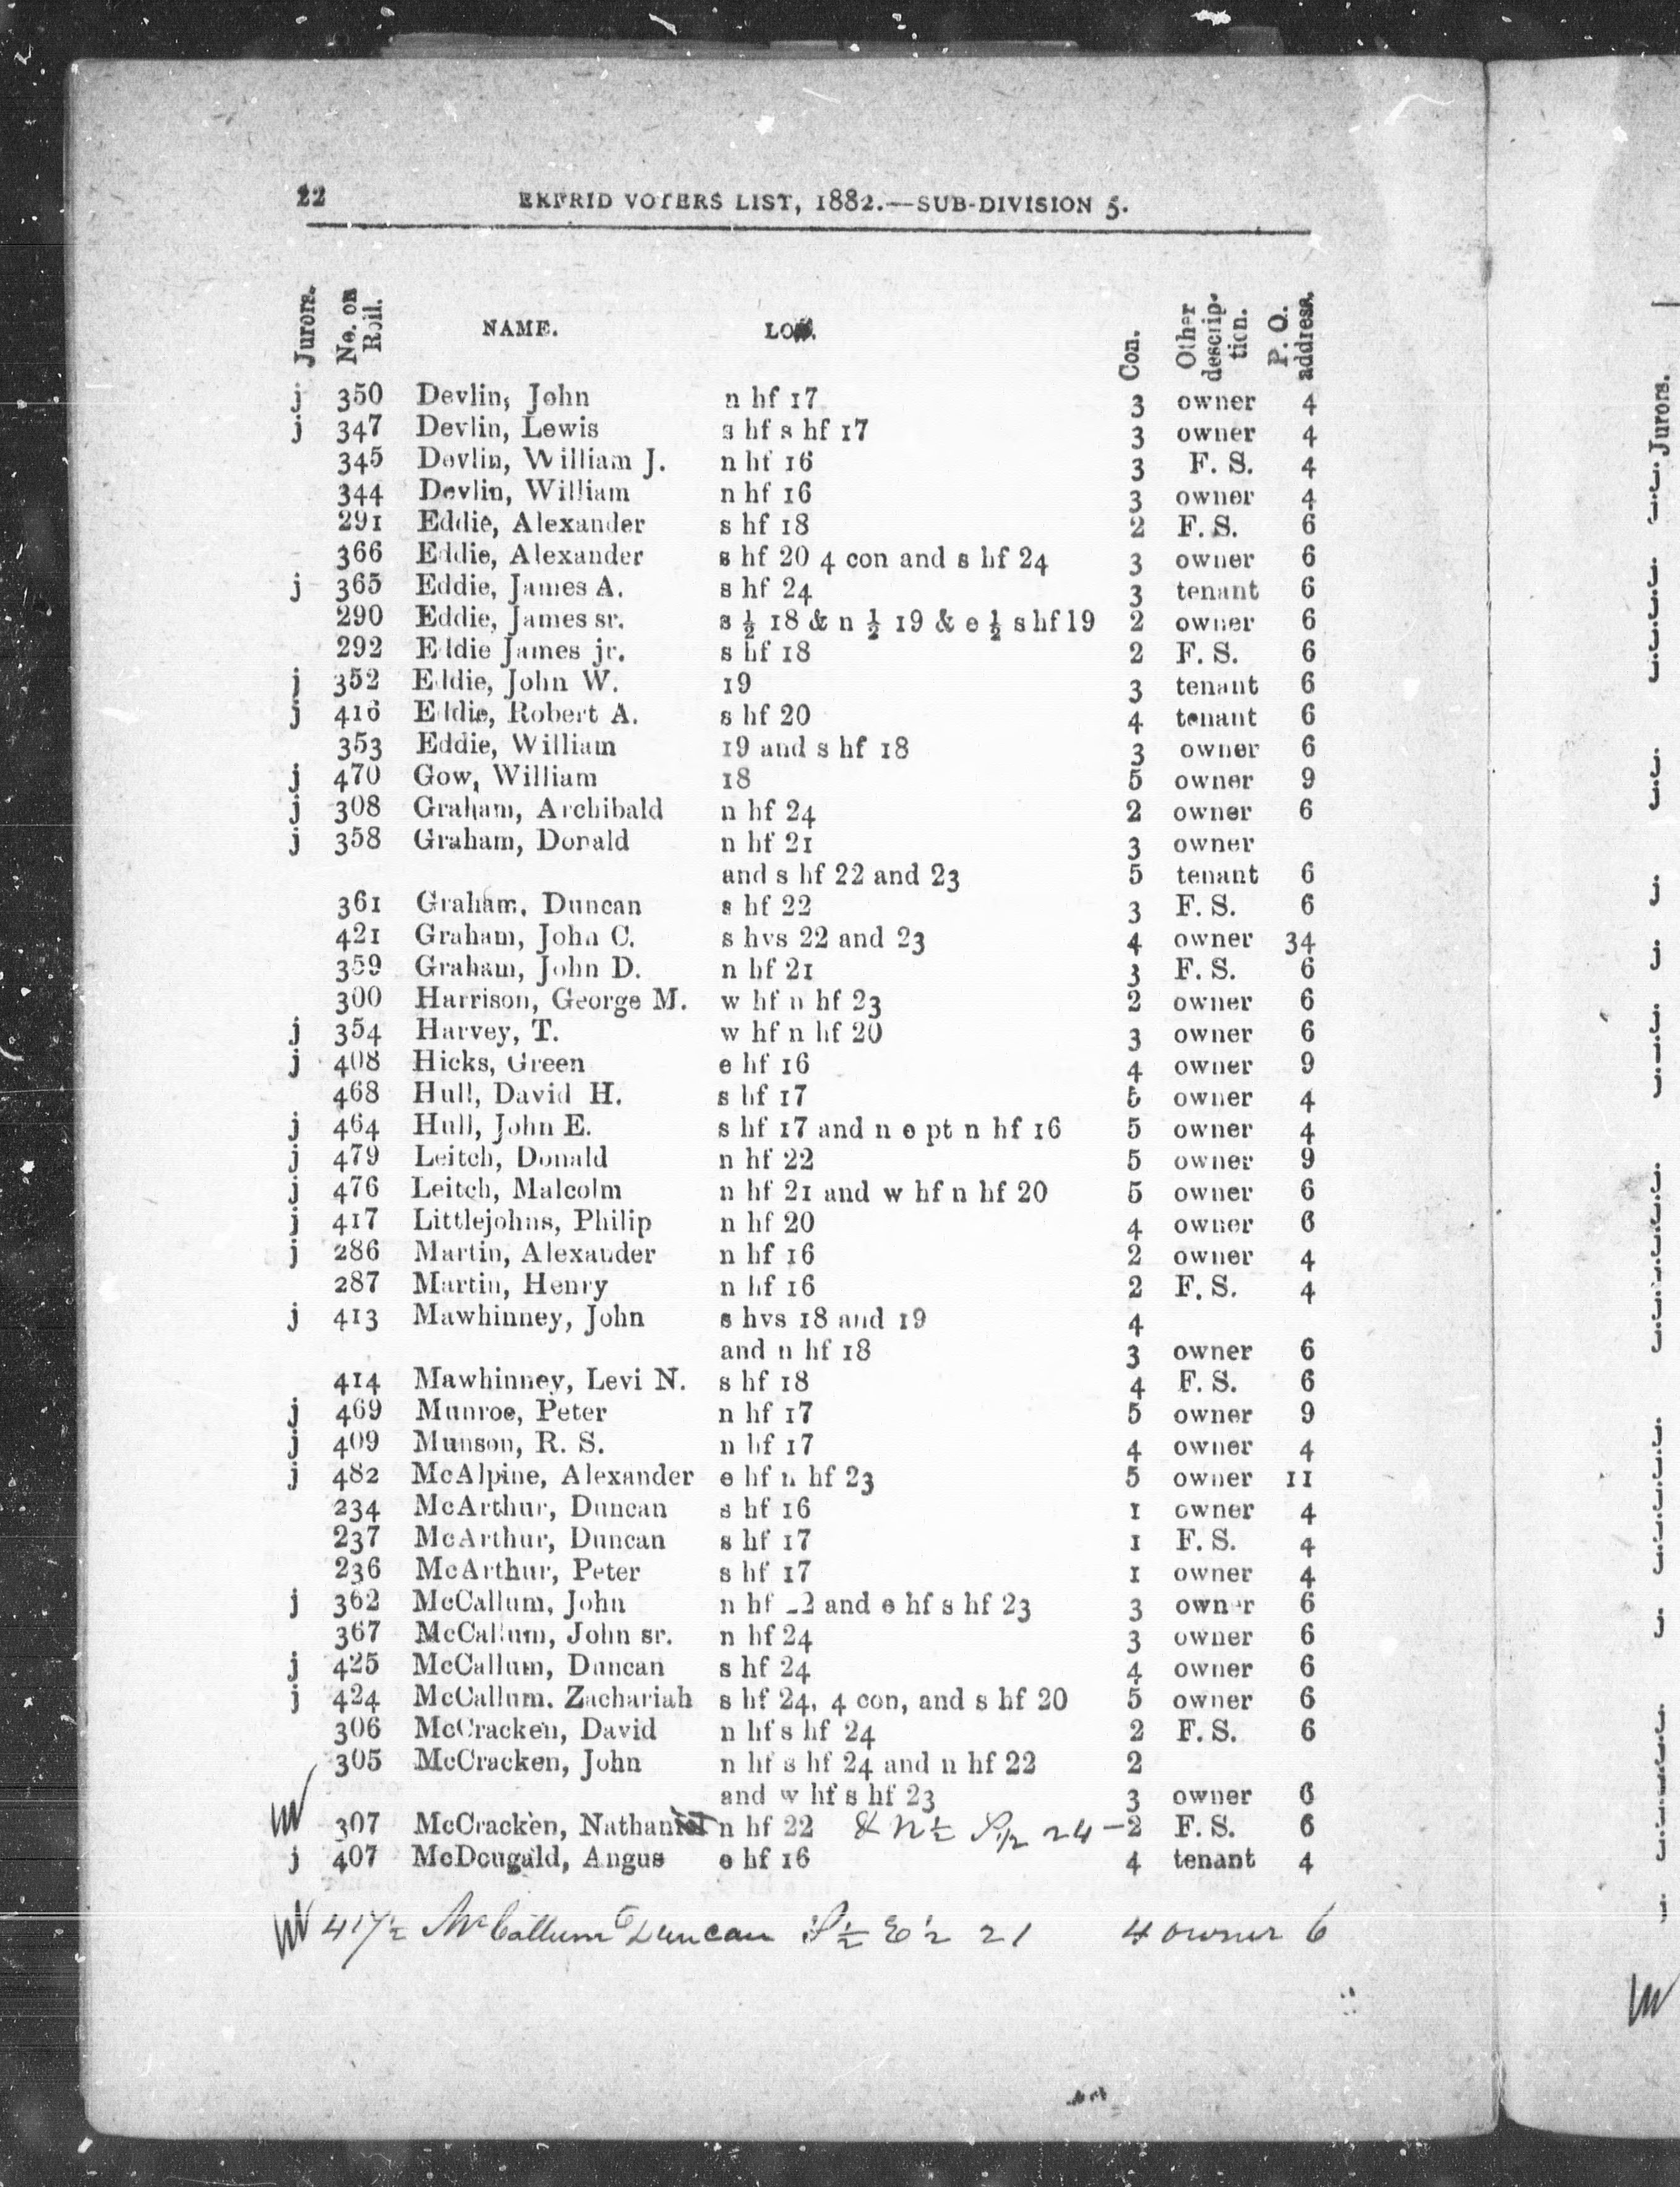 22 EKFRID VOTERS LIST, 1882.—SUB-DIVISION 5.
Jurors. No. on Roll. NAME. LOT. Con. Other descrip-tion. P. O. address.
j 350 Devlin, John n hf 17 3 owner 4
j 347 Devlin, Lewis s hf s hf 17 3 owner 4
345 Devlin, William J. n hf 16 3 F. S. 4
344 Devlin, William n hf 16 3 owner 4
291 Eddie, Alexander s hf 18 2 F. S. 6
366 Eddie, Alexander s hf 20 4 con and s hf 24 3 owner 6
j 365 Eddie, James A. s hf 24 3 tenant 6
290 Eddie, James sr. s ½ 18 & n ½ 19 & e ½ s hf 19 2 owner 6
292 Eddie James jr. s hf 18 2 F. S. 6
j 352 Eddie, John W. 19 3 tenant 6
j 416 Eddie, Robert A. s hf 20 4 tenant 6
353 Eddie, William 19 and s hf 18 3 owner 6
j 470 Gow, William 18 5 owner 9
j 308 Graham, Archibald n hf 24 2 owner 6
j 358 Graham, Donald n hf 21 3 owner
and s hf 22 and 23 5 tenant 6
361 Graham, Duncan s hf 22 3 F. S. 6
421 Graham, John C. s hvs 22 and 23 4 owner 34
359 Graham, John D. n hf 21 3 F. S. 6
300 Harrison, George M. w hf n hf 23 2 owner 6
j 354 Harvey, T. w hf n hf 20 3 owner 6
j 408 Hicks, Green e hf 16 4 owner 9
468 Hull, David H. s hf 17 5 owner 4
j 464 Hull, John E. s hf 17 and n e pt n hf 16 5 owner 4
j 479 Leitch, Donald n hf 22 5 owner 9
j 476 Leitch, Malcolm n hf 21 and w hf n hf 20 5 owner 6
j 417 Littlejohns, Philip n hf 20 4 owner 6
j 286 Martin, Alexander n hf 16 2 owner 4
287 Martin, Henry n hf 16 2 F. S. 4
j 413 Mawhinney, John s hvs 18 and 19 4
and n hf 18 3 owner 6
414 Mawhinney, Levi N. s hf 18 4 F. S. 6
j 469 Munroe, Peter n hf 17 5 owner 9
j 409 Munson, R. S. n hf 17 4 owner 4
j 482 McAlpine, Alexander e hf n hf 23 5 owner 11
234 McArthur, Duncan s hf 16 1 owner 4
237 McArthur, Duncan s hf 17 1 F. S. 4
236 McArthur, Peter s hf 17 1 owner 4
j 362 McCallum, John n hf 2 and e hf s hf 23 3 owner 6
367 McCallum, John sr. n hf 24 3 owner 6
j 425 McCallum, Duncan s hf 24 4 owner 6
j 424 McCallum. Zachariah s hf 24, 4 con, and s hf 20 5 owner 6
306 McCracken, David n hf s hf 24 2 F. S. 6
305 McCracken, John n hf s hf 24 and n hf 22 2
and w hf s hf 23 3 owner 6
307 McCracken, Nathaniel n hf 22 & N ½ S ½ 24 – 2 F. S. 6
j 407 McDougald, Angus e hf 16 4 tenant 4
417½ McCallum Duncan S ½ E ½ 21 4 owner 6
Jurors.